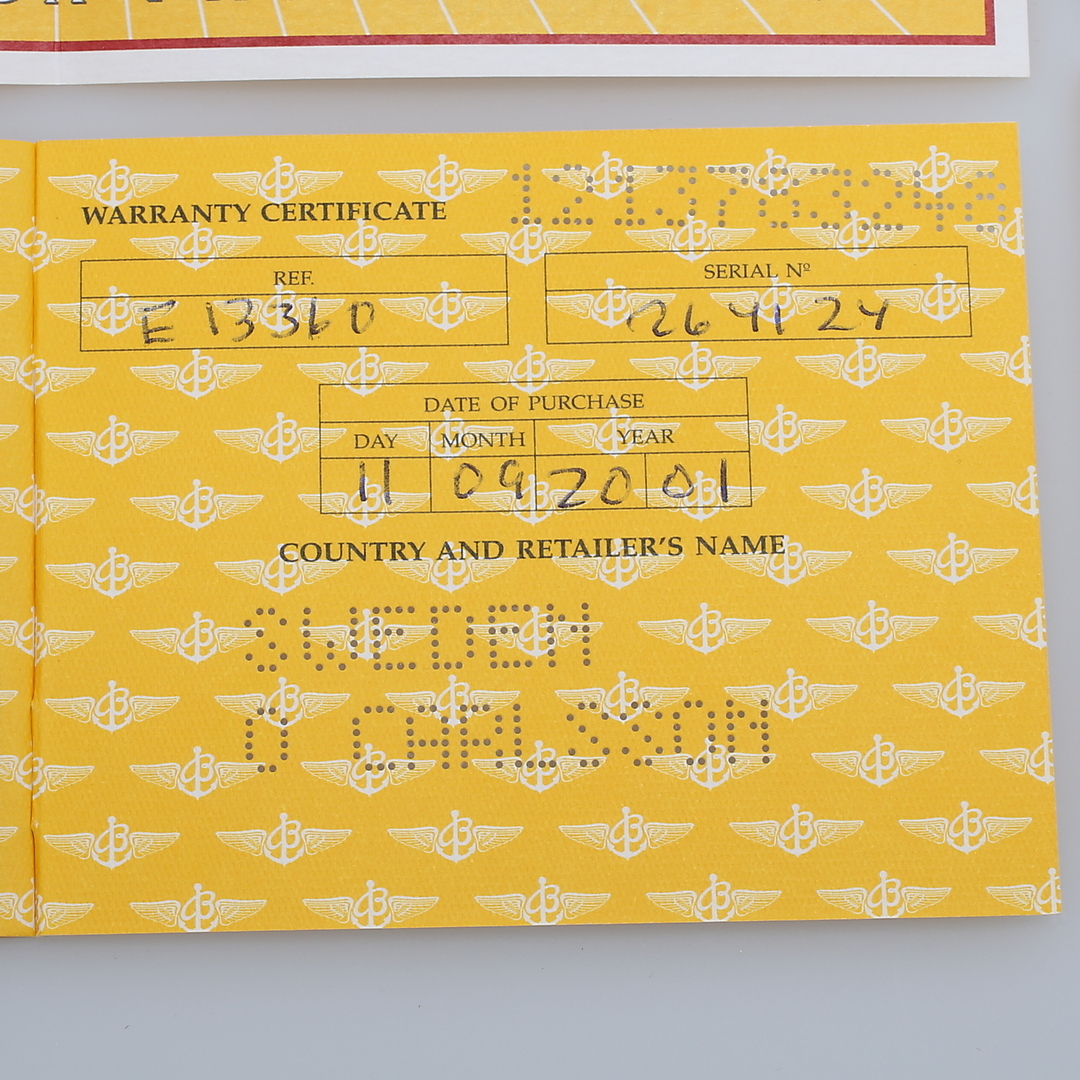 WARRANTY CERTIFICATE
REF.
E 13360
SERIAL Nº
26 41 24
DATE OF PURCHASE
DAY MONTH YEAR
11 09 20 01
COUNTRY AND RETAILER'S NAME
SWEDEN
O CARLSSON